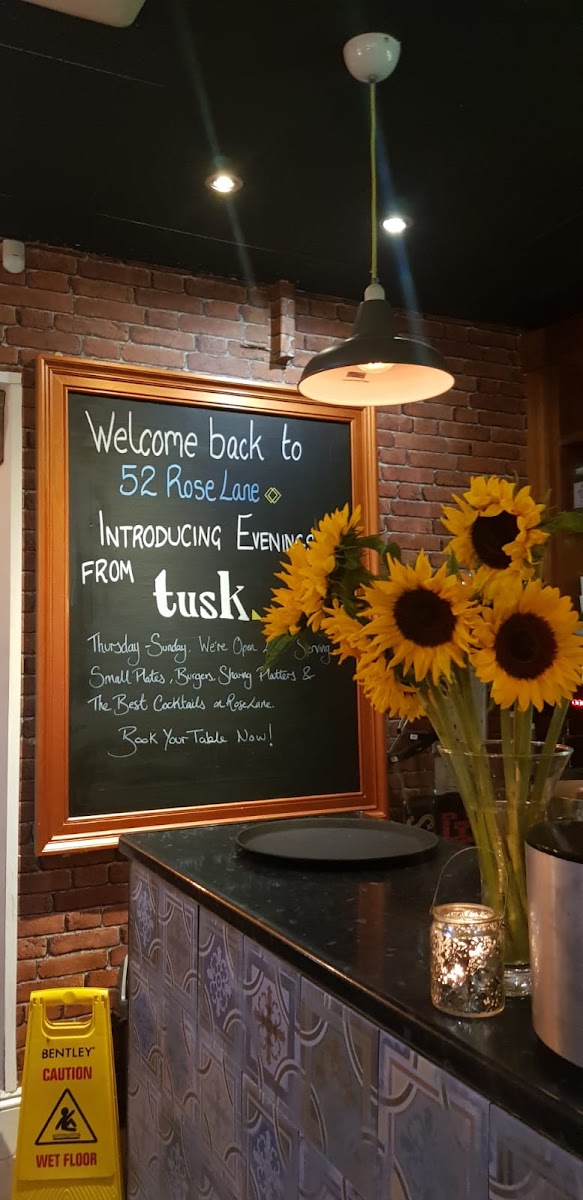 Welcome back to
52 Rose Lane
INTRODUCING EVENINGS
FROM tusk.
Thursday - Sunday. We're Open Serving
Small Plates, Burgers, Sharing Platters &
The Best Cocktails on Rose Lane.
Book Your Table Now!
BENTLEY
CAUTION
WET FLOOR